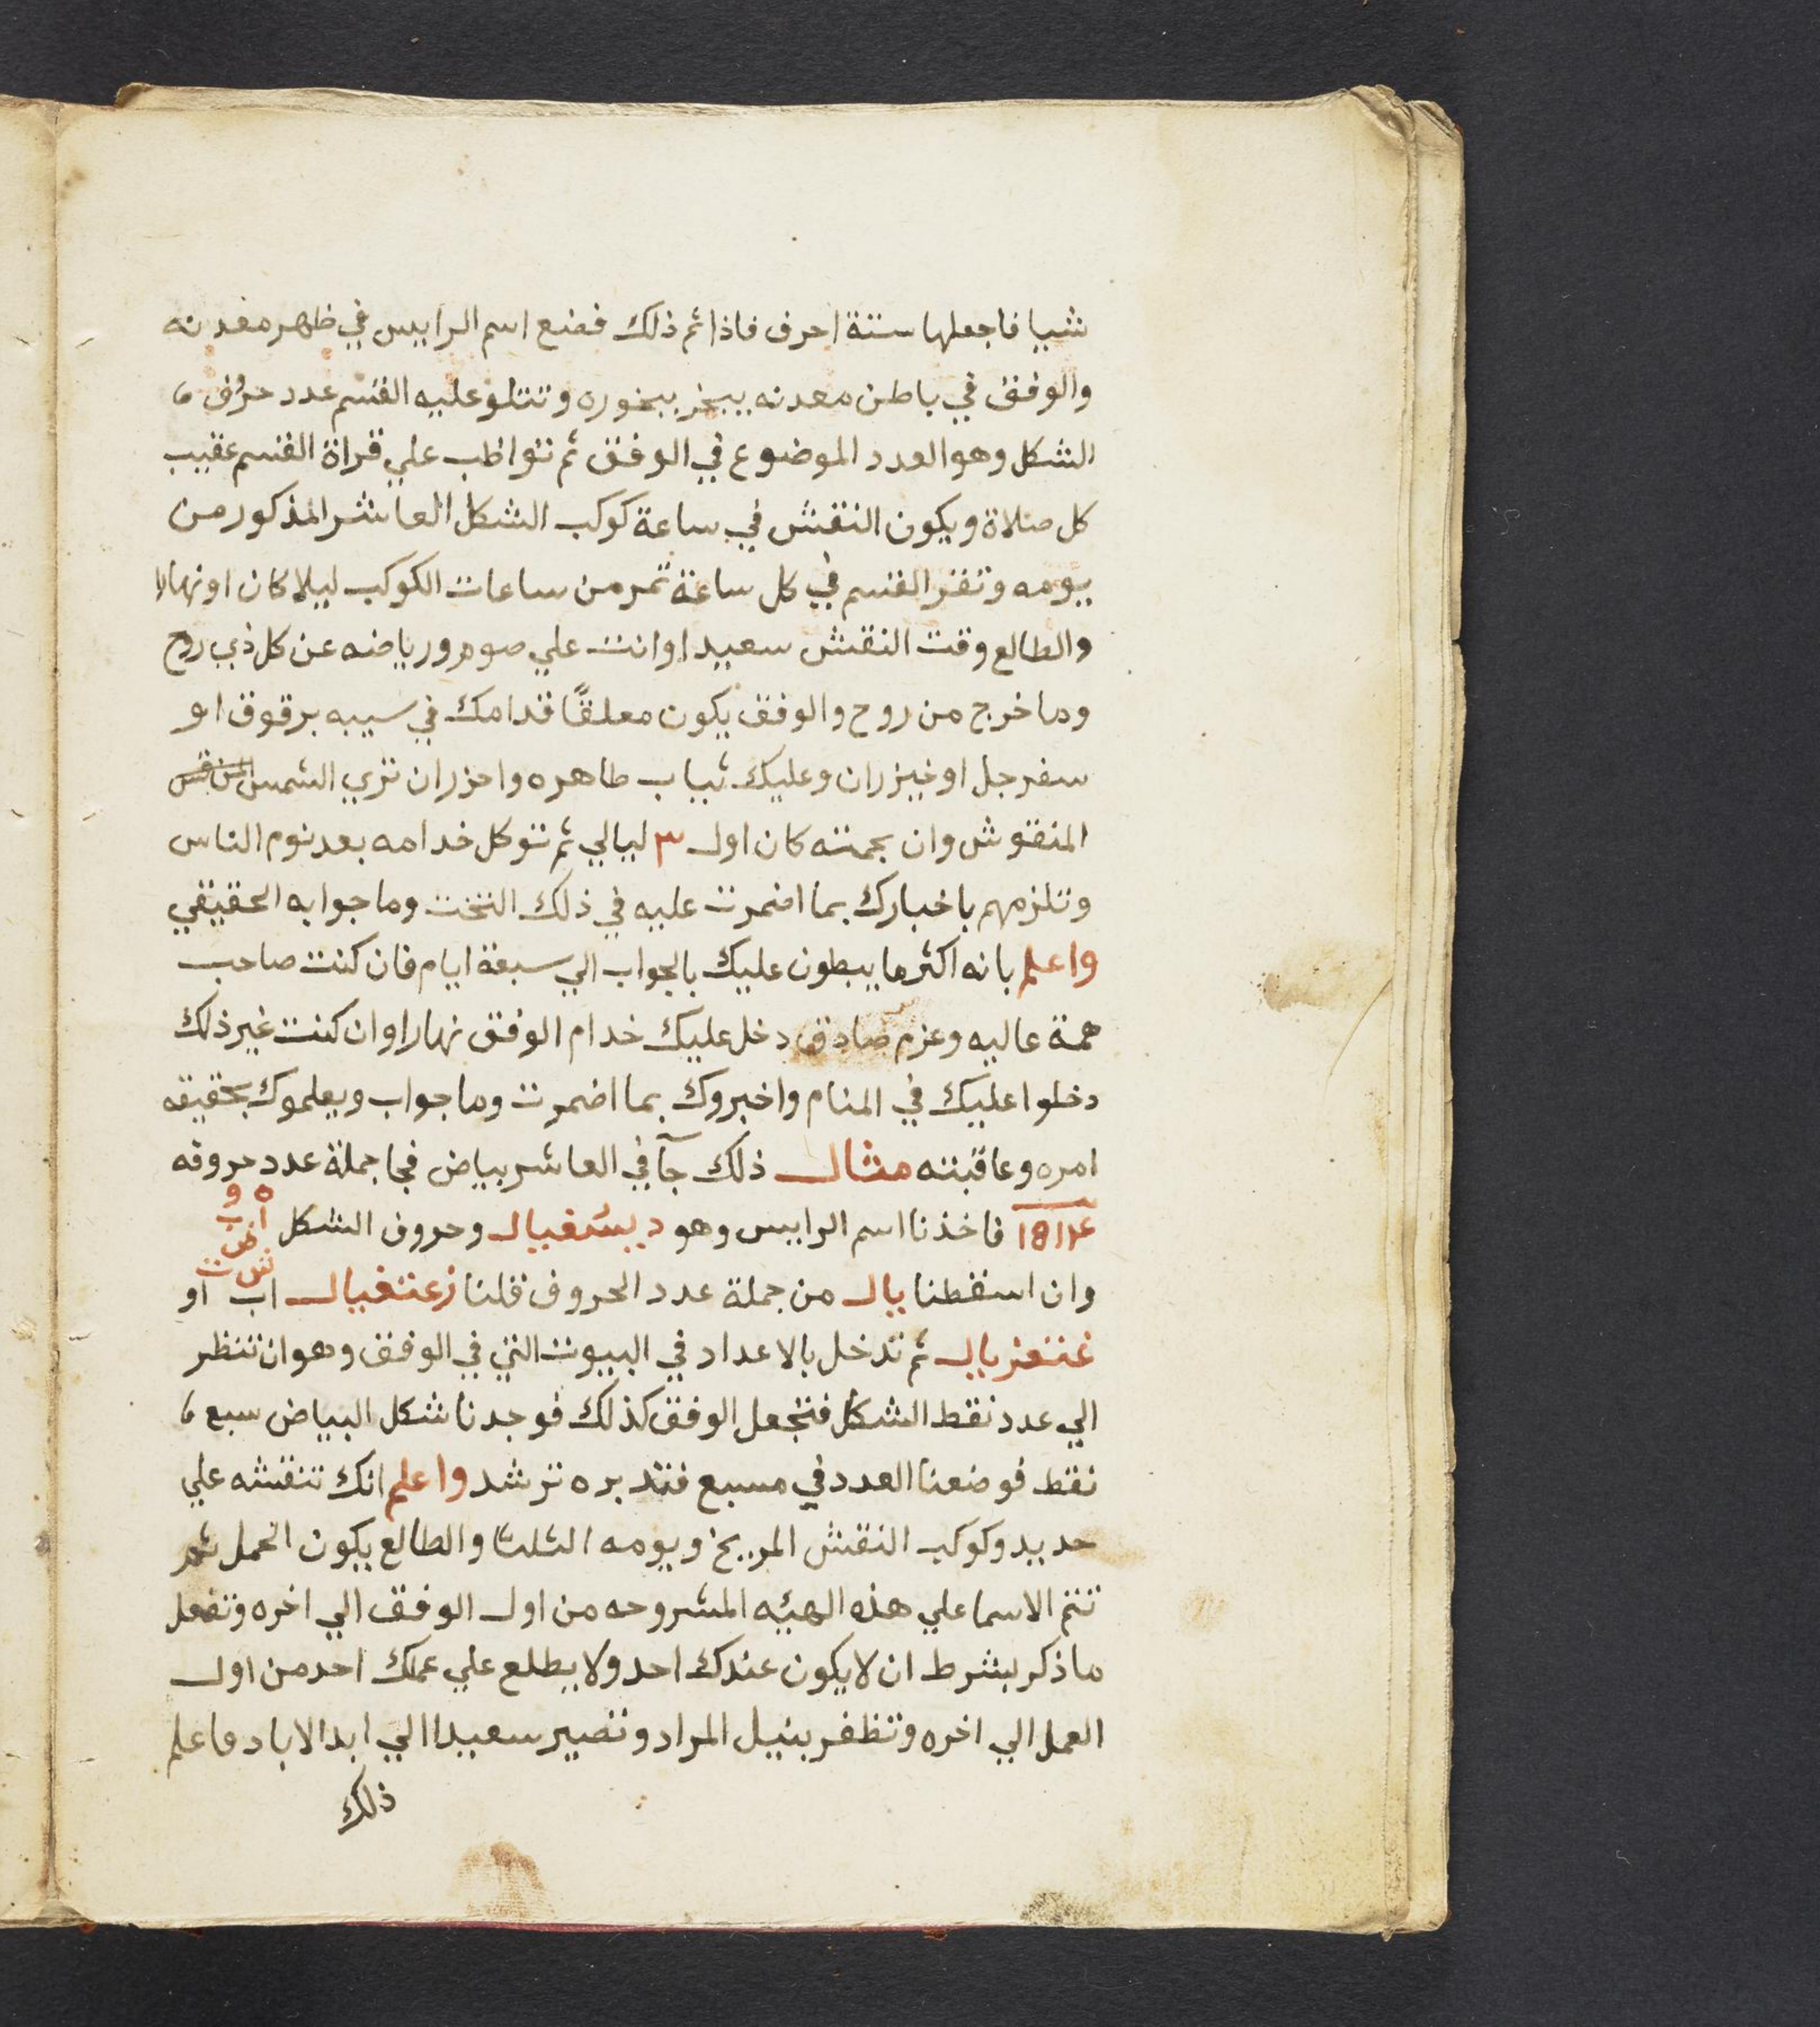 شيا فاجعلها ستة احرف فاذا تم ذلك فضع اسم الراييس في ظهر معدنه
والوفق في باطن معدنه يبخر ببخوره وتتلو عليه القسم عدد حروف
الشكل وهو العدد الموضوع في الوفق ثم تواظب علي قراة القسم عقيب
كل صلاة ويكون النقش في ساعة كوكب الشكل العاشر المذكور من
يومه وتقر القسم في كل ساعة تمر من ساعات الكوكب ليلا كان او نهارا
والطالع وقت النقش سعيدا وانت علي صوم ورياضه عن كل ذي روح
وما خرج من روح والوفق يكون معلقًا قدامك في سيبه برقوق او
سفرجل او خيزران وعليك ثياب طاهره واحزر ان تري الشمس
المنقوش وان بجمته كان اول ٣ ليالي ثم توكل خدامه بعد نوم الناس
وتلزمهم باخبارك بما اضمرت عليه في ذلك التخت وما جوابه الحقيقي
واعلم بانه اكثر ما يبطون عليك بالجواب الي سبعة ايام فان كنت صاحب
همة عاليه وعزم صادق دخل عليك خدام الوفق نهارا وان كنت غير ذلك
دخلوا عليك في المنام واخبروك بما اضمرت وما جواب ويعلموك بحقيقه
امره وعاقبته مثال ذلك جآ في العاشر بياض فجا جملة عدد حروفه
فاخذنا اسم الراييس وهو ديسغيال وحروف الشكل
وان اسقطنا يال من جملة عدد الحروف قلنا زعتغيال اب او
ثم تدخل بالاعداد في البيوت التي في الوفق وهو ان تنظر
الي عدد نقط الشكل فتجعل الوفق كذلك فوجدنا شكل البياض سبع
نقط فوضعنا العدد في مسبع فتدبره ترشد واعلم انك تنقشه علي
حديد وكوكب النقش المريخ ويومه الثلثا والطالع يكون الحمل ثم
تتم الاسما علي هذه الهيئه المشروحه من اول الوفق الي اخره وتفعل
ما ذكر بشرط ان لا يكون عندك احد ولا يطلع علي عملك احد من اول
العمل الي اخره وتظفر بنيل المراد وتصير سعيدا الي ابد الاباد فاعلم
ذلك